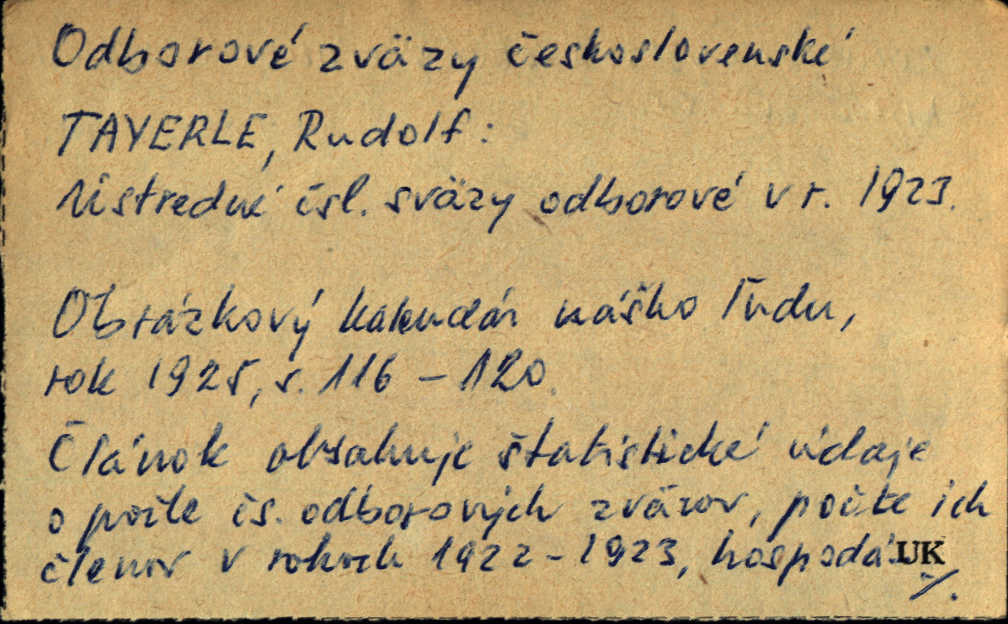 Odborové zväzy československé
TAYERLE, Rudolf:
Ústredné čsl. sväzy odborové v r. 1923.
Obrázkový kalendár nášho ľudu,
rok 1925, s. 116 – 120.
Článok obsahuje štatistické údaje
o počte čs. odborových zväzov, počte ich
členov v rokoch 1922 – 1923, hospodá
UK
./.